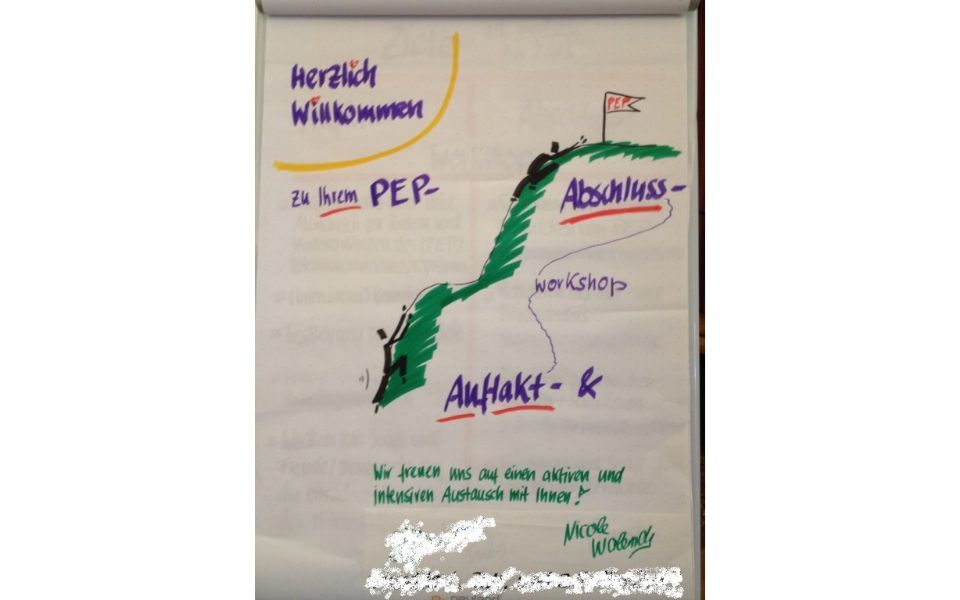 Herzlich
Willkommen
zu Ihrem PEP-
PEP
Abschluss-
workshop
Auftakt- &
Wir freuen uns auf einen aktiven und
intensiven Austausch mit Ihnen!
Nicole